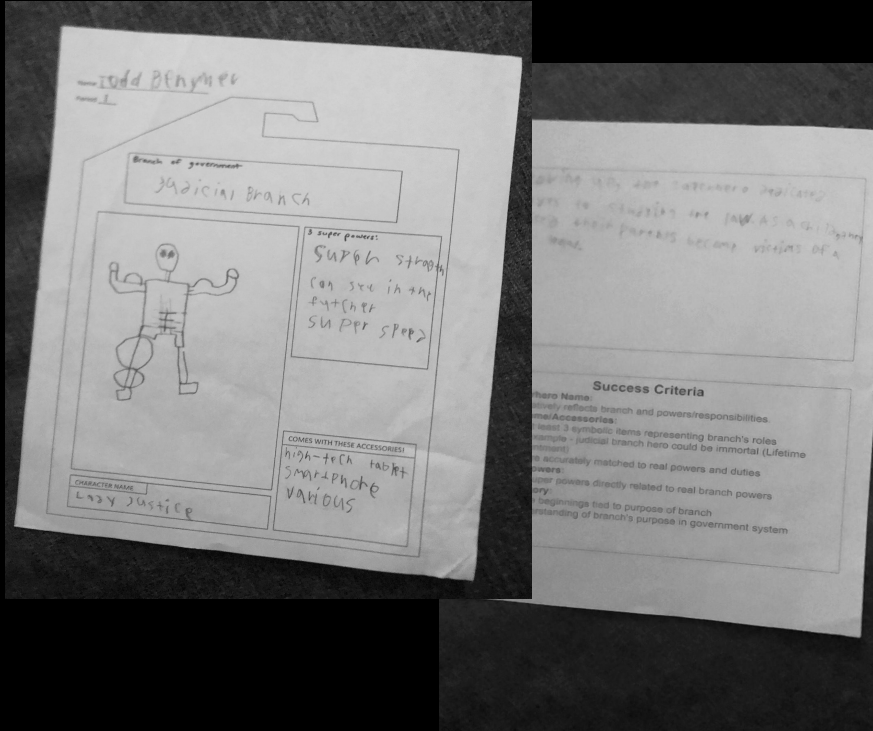 Name Todd Benymer
Period 1
Branch of government
Judicial Branch
3 super powers:
super strength
can see in the
futcher
super speed
COMES WITH THESE ACCESSORIES!
high-tech tablet
smartphone
various
CHARACTER NAME
Lazy Justice
up, the superhero dedicated
to studying the law. As a child,
their parents become victims of a
Success Criteria
hero Name:
reflects branch and powers/responsibilities.
me/Accessories:
least 3 symbolic items representing branch's roles
xample - judicial branch hero could be immortal (Lifetime
accurately matched to real powers and duties
owers:
uper powers directly related to real branch powers
ory:
beginnings tied to purpose of branch
rstanding of branch's purpose in government system